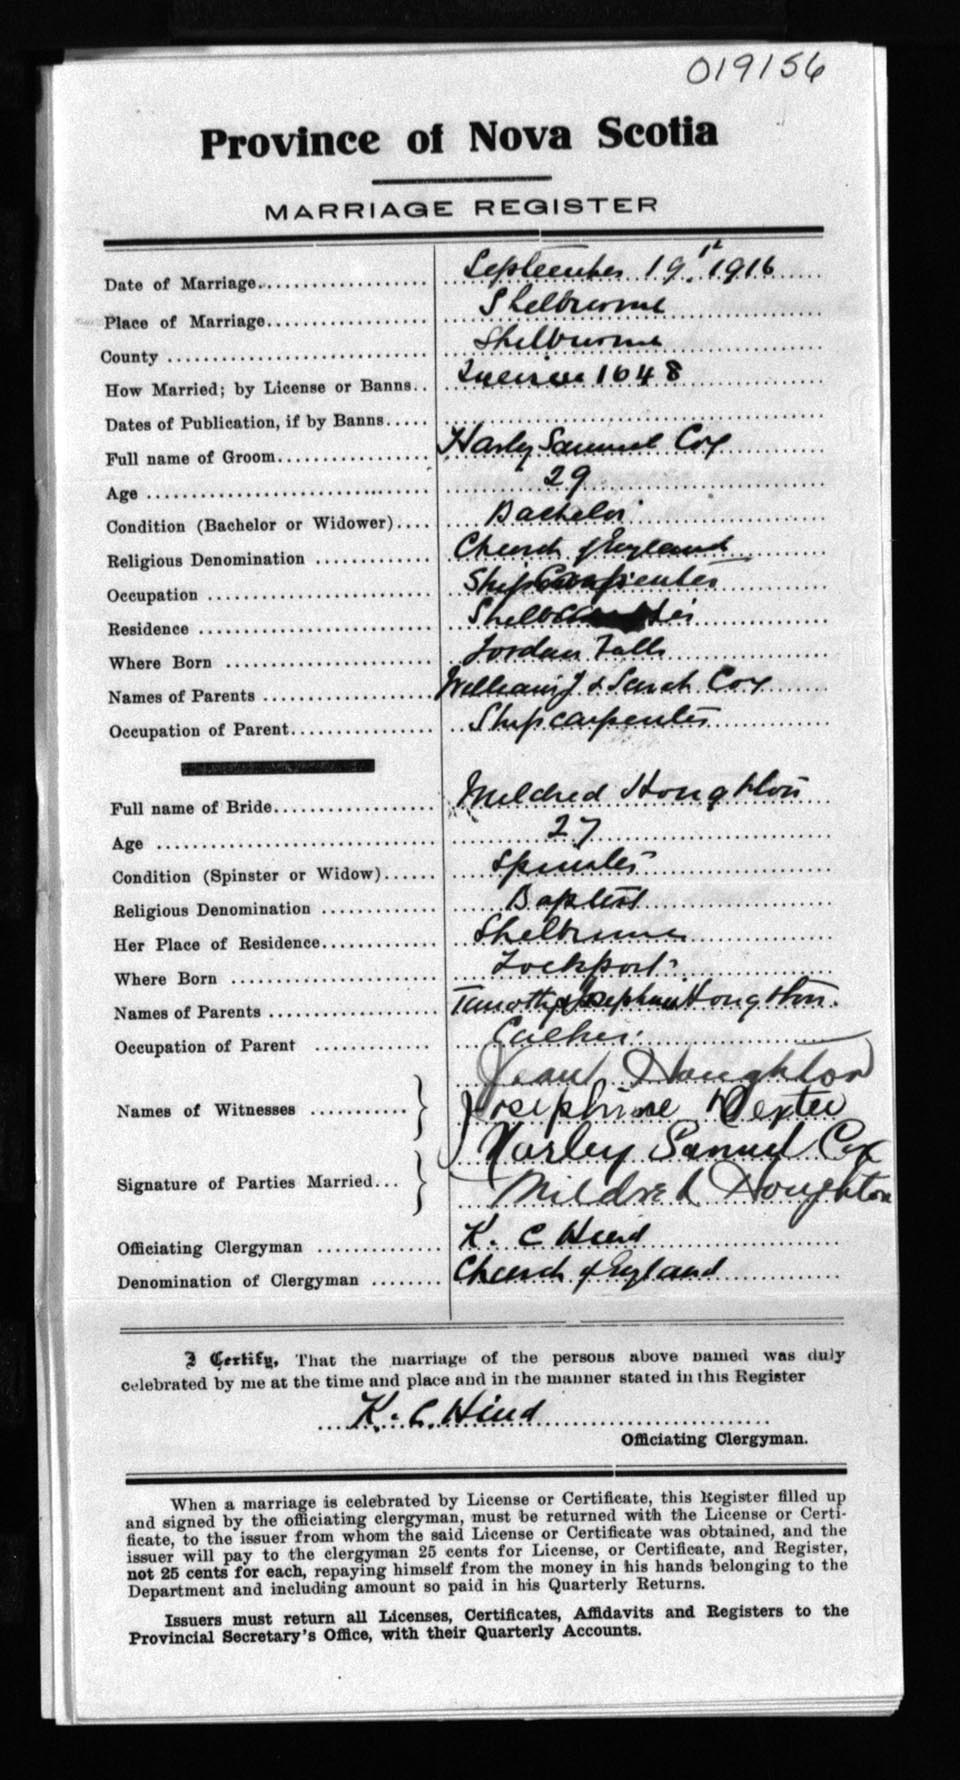 019156
Province of Nova Scotia
MARRIAGE REGISTER
Date of Marriage September 19, 1916
Place of Marriage Shelburne
County Shelburne
How Married; by License or Banns License 1048
Dates of Publication, if by Banns
Full name of Groom Harley Samuel Cox
Age 29
Condition (Bachelor or Widower) Bachelor
Religious Denomination Church of England
Occupation Ship Carpenter
Residence
Where Born Jordan Falls
Names of Parents William J & Sarah Cox
Occupation of Parent Ship carpenter
Full name of Bride Mildred Houghton
Age 27
Condition (Spinster or Widow) Spinster
Religious Denomination Baptist
Her Place of Residence Shelburne
Where Born Lockport
Names of Parents Timothy & Josephine Houghton
Occupation of Parent
Names of Witnesses Houghton
Josephine Dexter
Signature of Parties Married Harley Samuel Cox
Mildred Houghton
Officiating Clergyman K. C Hind
Denomination of Clergyman Church of England
I Certify, That the marriage of the persons above named was duly
celebrated by me at the time and place and in the manner stated in this Register
K. C. Hind
Officiating Clergyman.
When a marriage is celebrated by License or Certificate, this Register filled up
and signed by the officiating clergyman, must be returned with the License or Certi-
ficate, to the issuer from whom the said License or Certificate was obtained, and the
issuer will pay to the clergyman 25 cents for License, or Certificate, and Register,
not 25 cents for each, repaying himself from the money in his hands belonging to the
Department and including amount so paid in his Quarterly Returns.
Issuers must return all Licenses, Certificates, Affidavits and Registers to the
Provincial Secretary's Office, with their Quarterly Accounts.